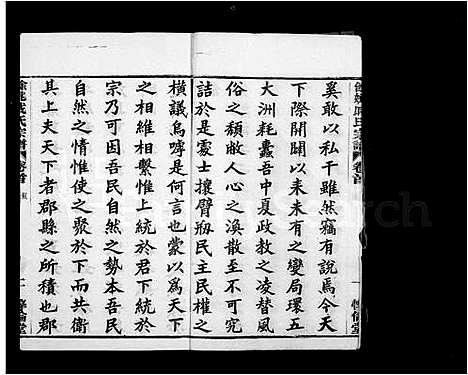 餘姚戚氏宗譜 卷首
惇倫堂
奚敢以私干雖然竊有說焉今天
下際開闢以來未有之變局環五
大洲耗蠹吾中夏政教之凌替風
俗之頹敝人心之渙散至不可究
詰於是處士攘臂瘏民主民權之
橫議烏嘑是何言也蒙以為天下
之相維相繫惟上統於君下統於
宗乃可因吾民自然之勢本吾民
自然之情惟使之聚於下而共衛
其上夫天下者郡縣之所積也郡
餘姚戚氏宗譜 卷首
惇倫堂